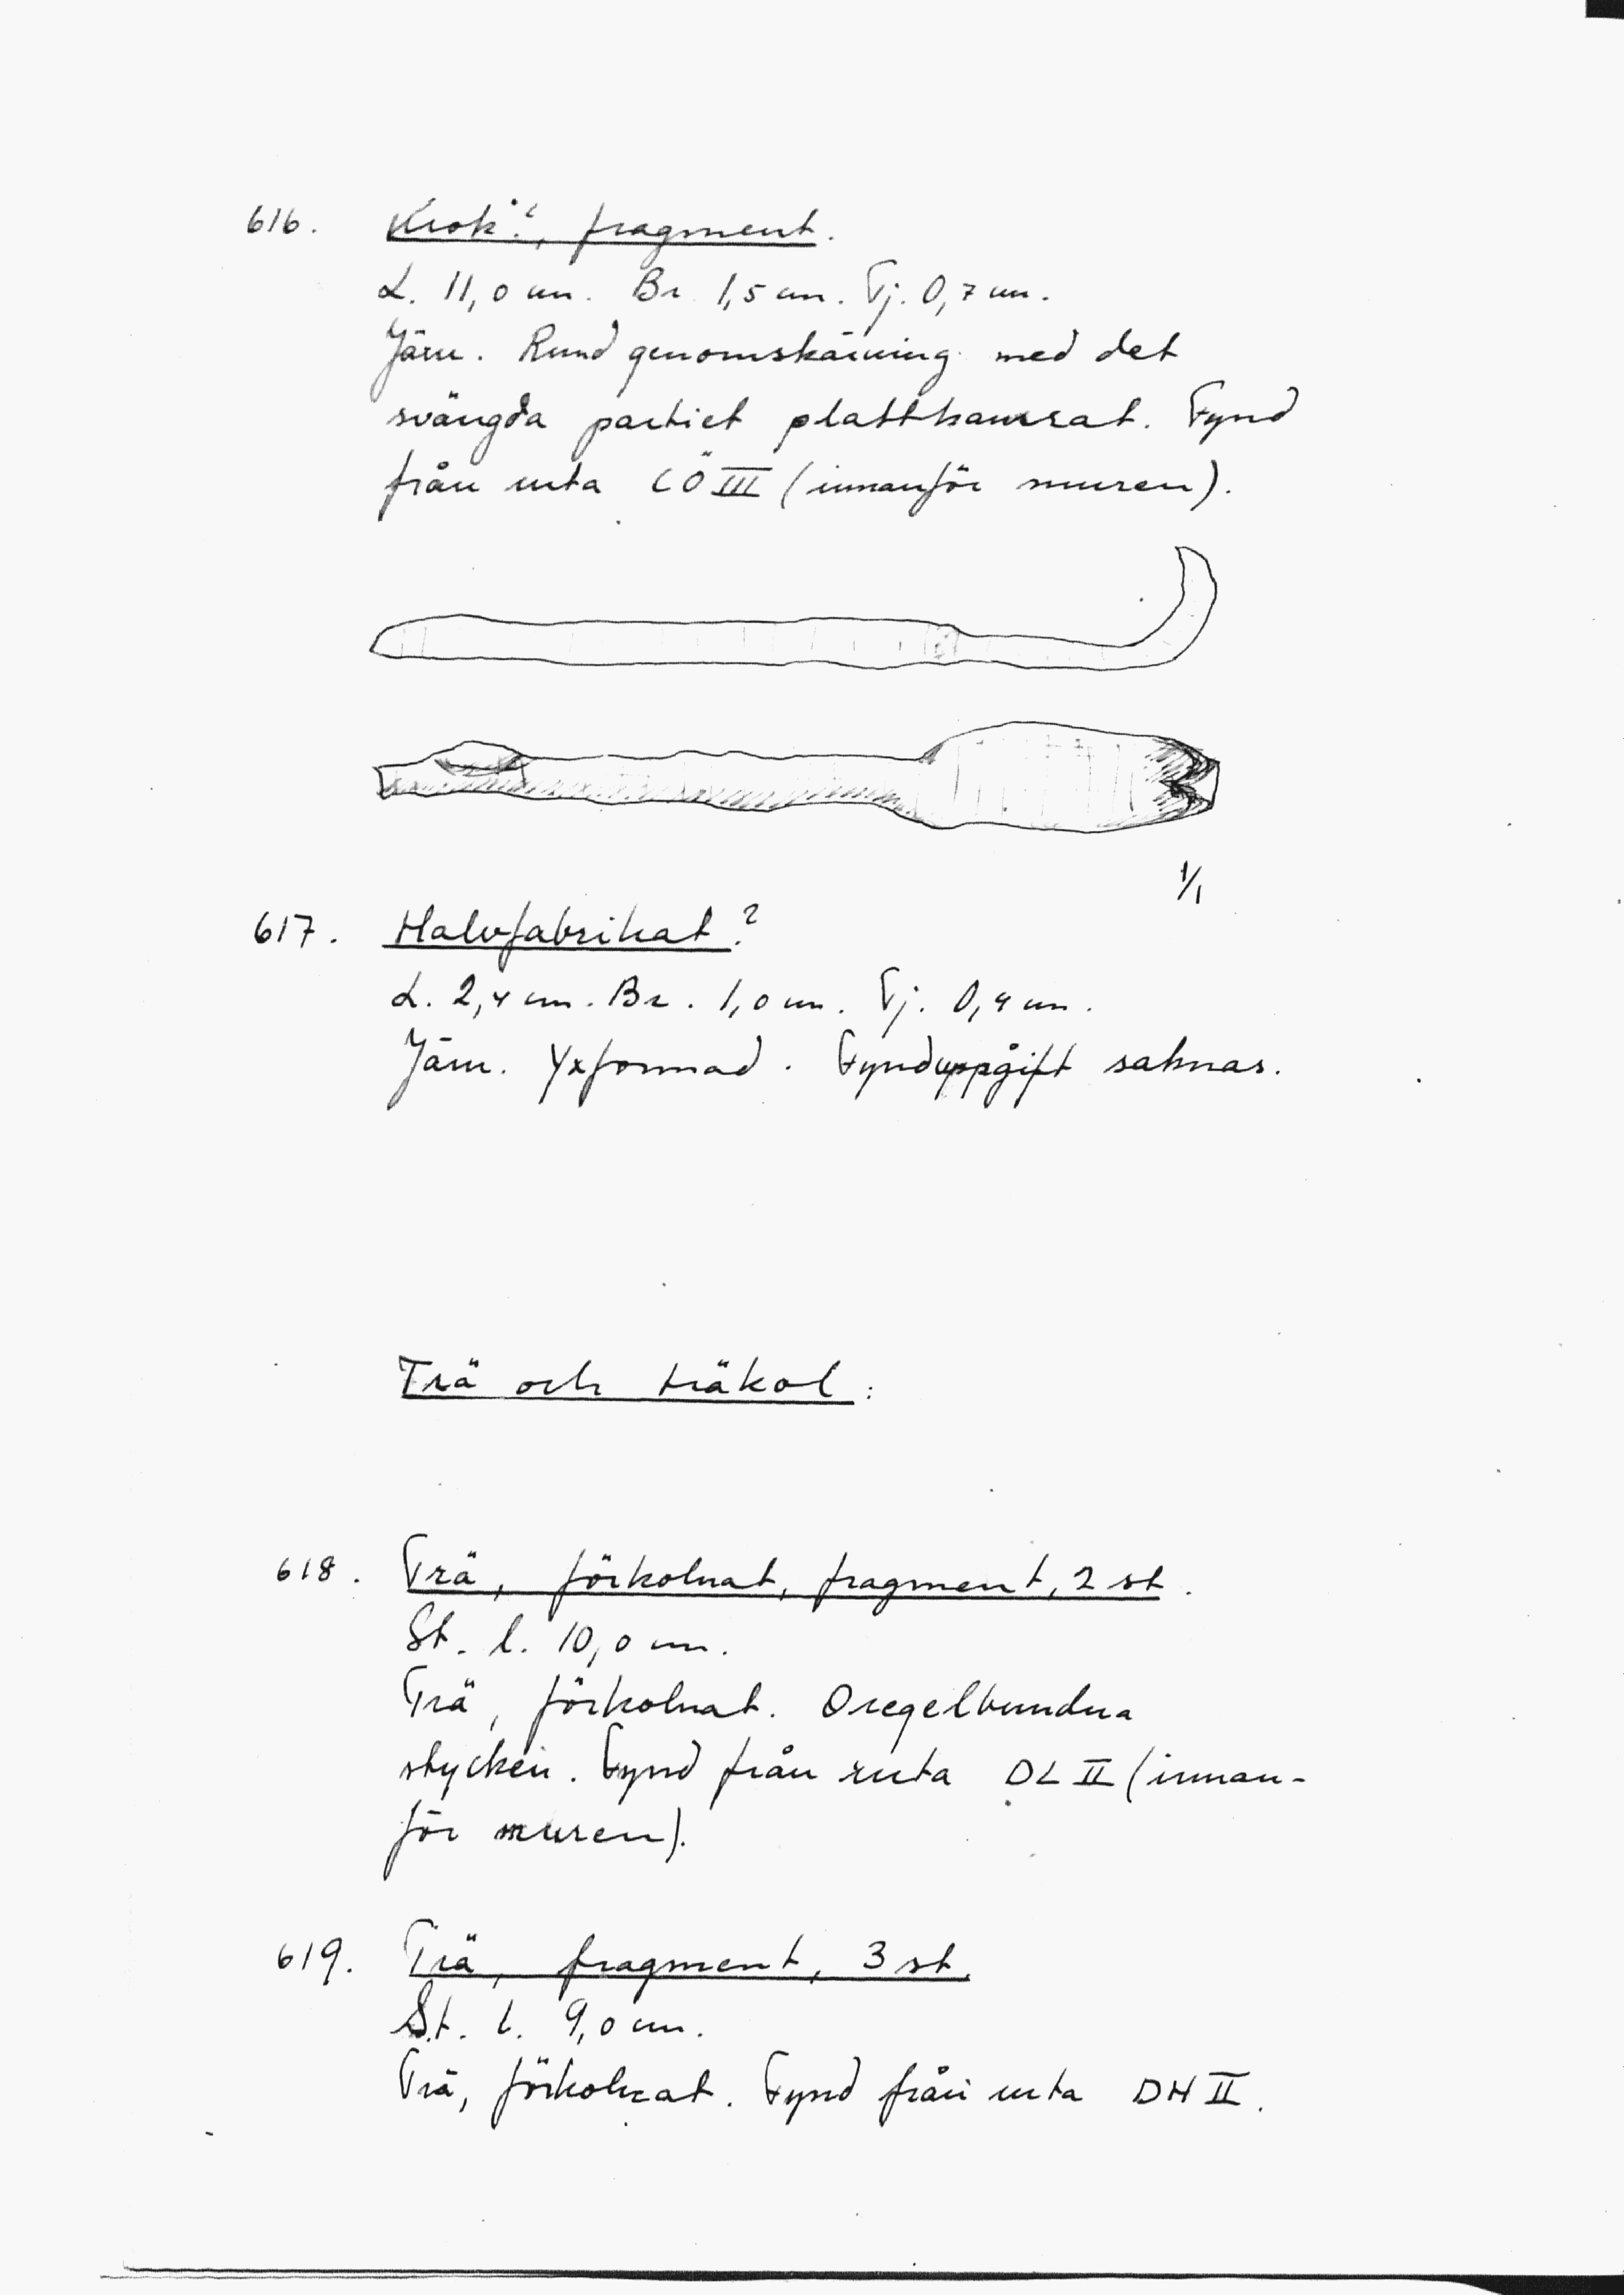 616. Krok?, fragment.
L. 11,0 cm. Br. 1,5 cm. Tj. 0,7 cm.
Järn. Rund genomskärning med det
svängda partiet platthamrat. Fynd
från ruta CÖ III (innanför muren).
1/1
617. Halvfabrikat?
L. 2,4 cm. Br. 1,0 cm. Tj. 0,4 cm.
Järn. Yxformad. Fynduppgift saknas.
Trä och träkol:
618. Trä, förkolnat, fragment, 2 st.
St. l. 10,0 cm.
Trä, förkolnat. Oregelbundna
stycken. Fynd från ruta DL II (innan-
för muren).
619. Trä, fragment, 3 st.
St. l. 9,0 cm.
Trä, förkolnat. Fynd från ruta DH II.